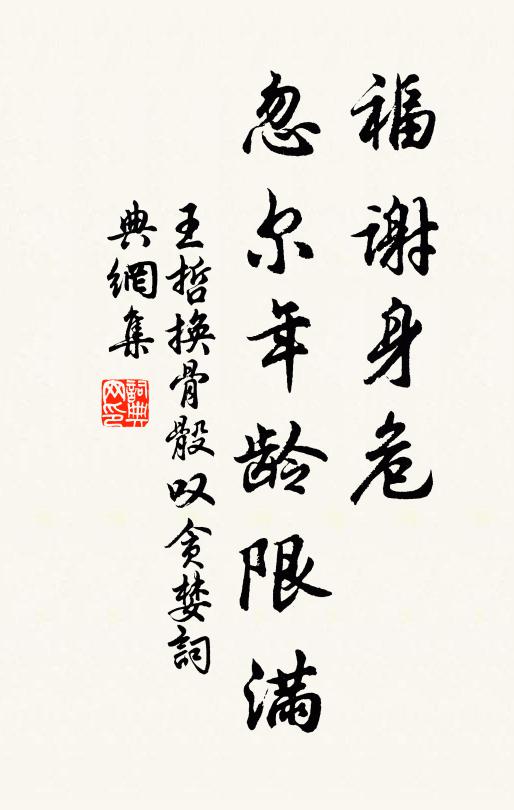 福谢身危
忽尔年龄限满
王哲换骨骰叹贪婪詞
典網集
詞典网印